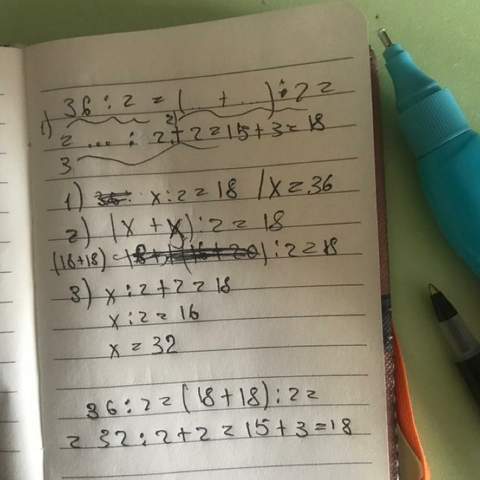 36 : 2 = (... + ...) : 2 =
1) 2)
= ... : 2 + 2 = 15 + 3 = 18
3
1) x : 2 = 18 / x = 36
2) (x + x) : 2 = 18
(18+18) = : 2 = 18
3) x : 2 + 2 = 18
x : 2 = 16
x = 32
36 : 2 = (18 + 18) : 2 =
= 32 : 2 + 2 = 15 + 3 = 18